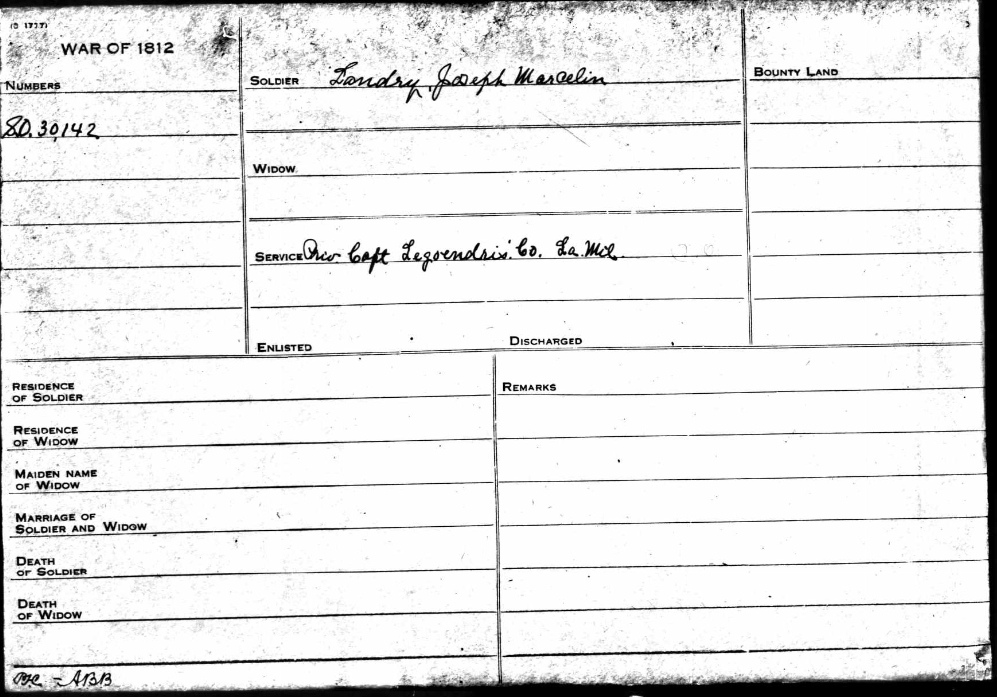 WAR OF 1812
NUMBERS
SO. 30142
SOLDIER Landry, Joseph Marcelin
WIDOW
SERVICE Priv. Capt Legoendris' Co. La. Mil.
ENLISTED DISCHARGED
BOUNTY LAND
RESIDENCE
OF SOLDIER
RESIDENCE
OF WIDOW
MAIDEN NAME
OF WIDOW
MARRIAGE OF
SOLDIER AND WIDOW
DEATH
OF SOLDIER
DEATH
OF WIDOW
REMARKS
- ABB